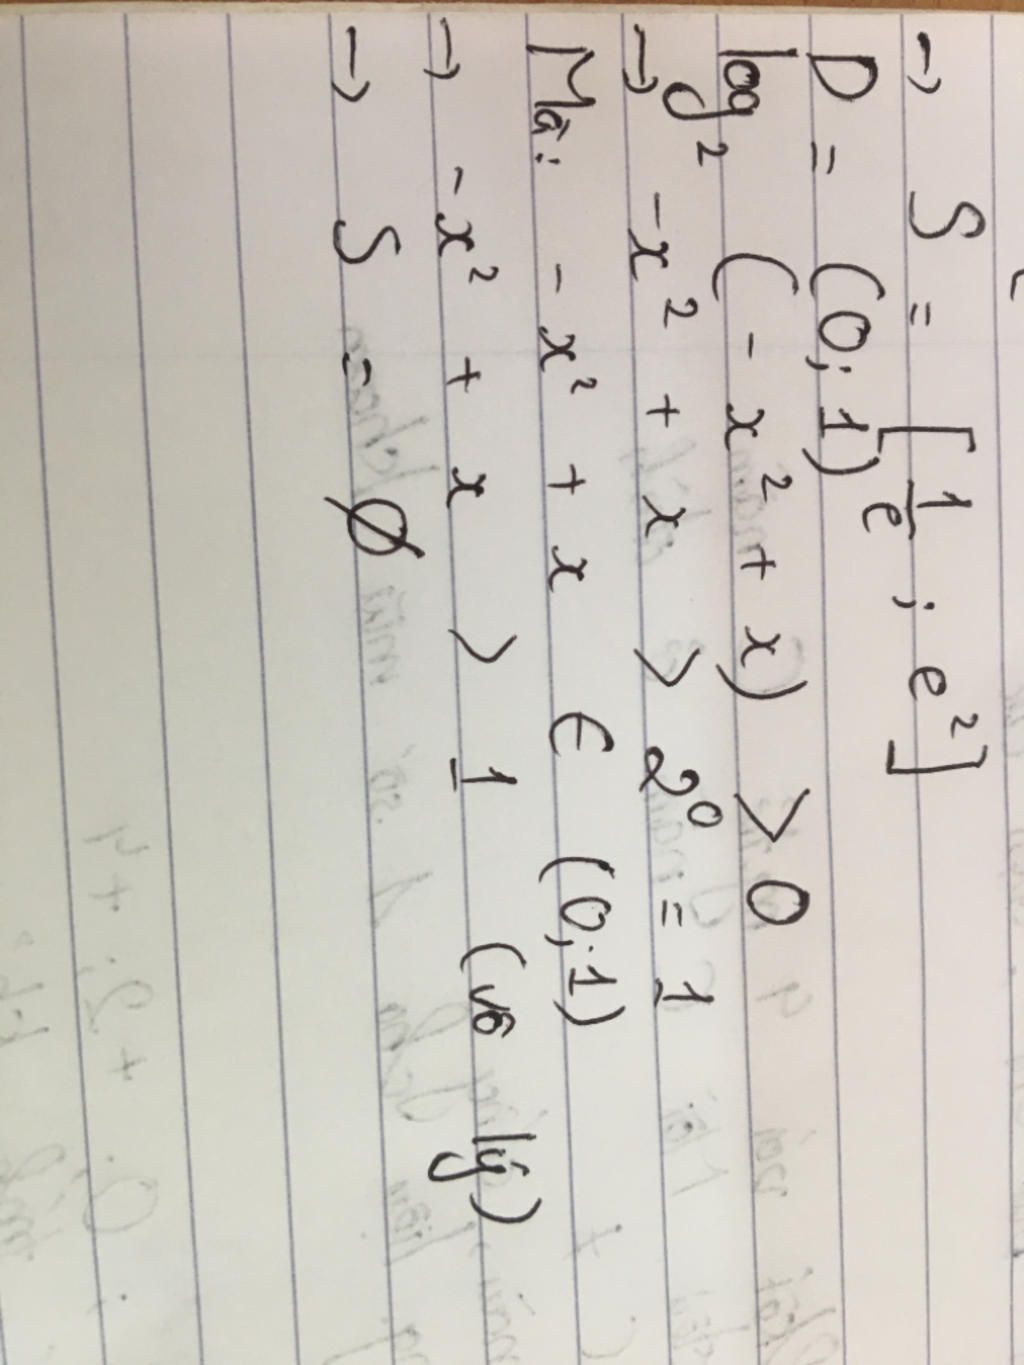 → S = [1/e ; e²]
D = (0; 1)
log₂ (-x² + x) > 0
→ -x² + x > 2⁰ = 1
Mà: -x² + x ∈ (0; 1)
→ -x² + x > 1 (vô lý)
→ S = ∅